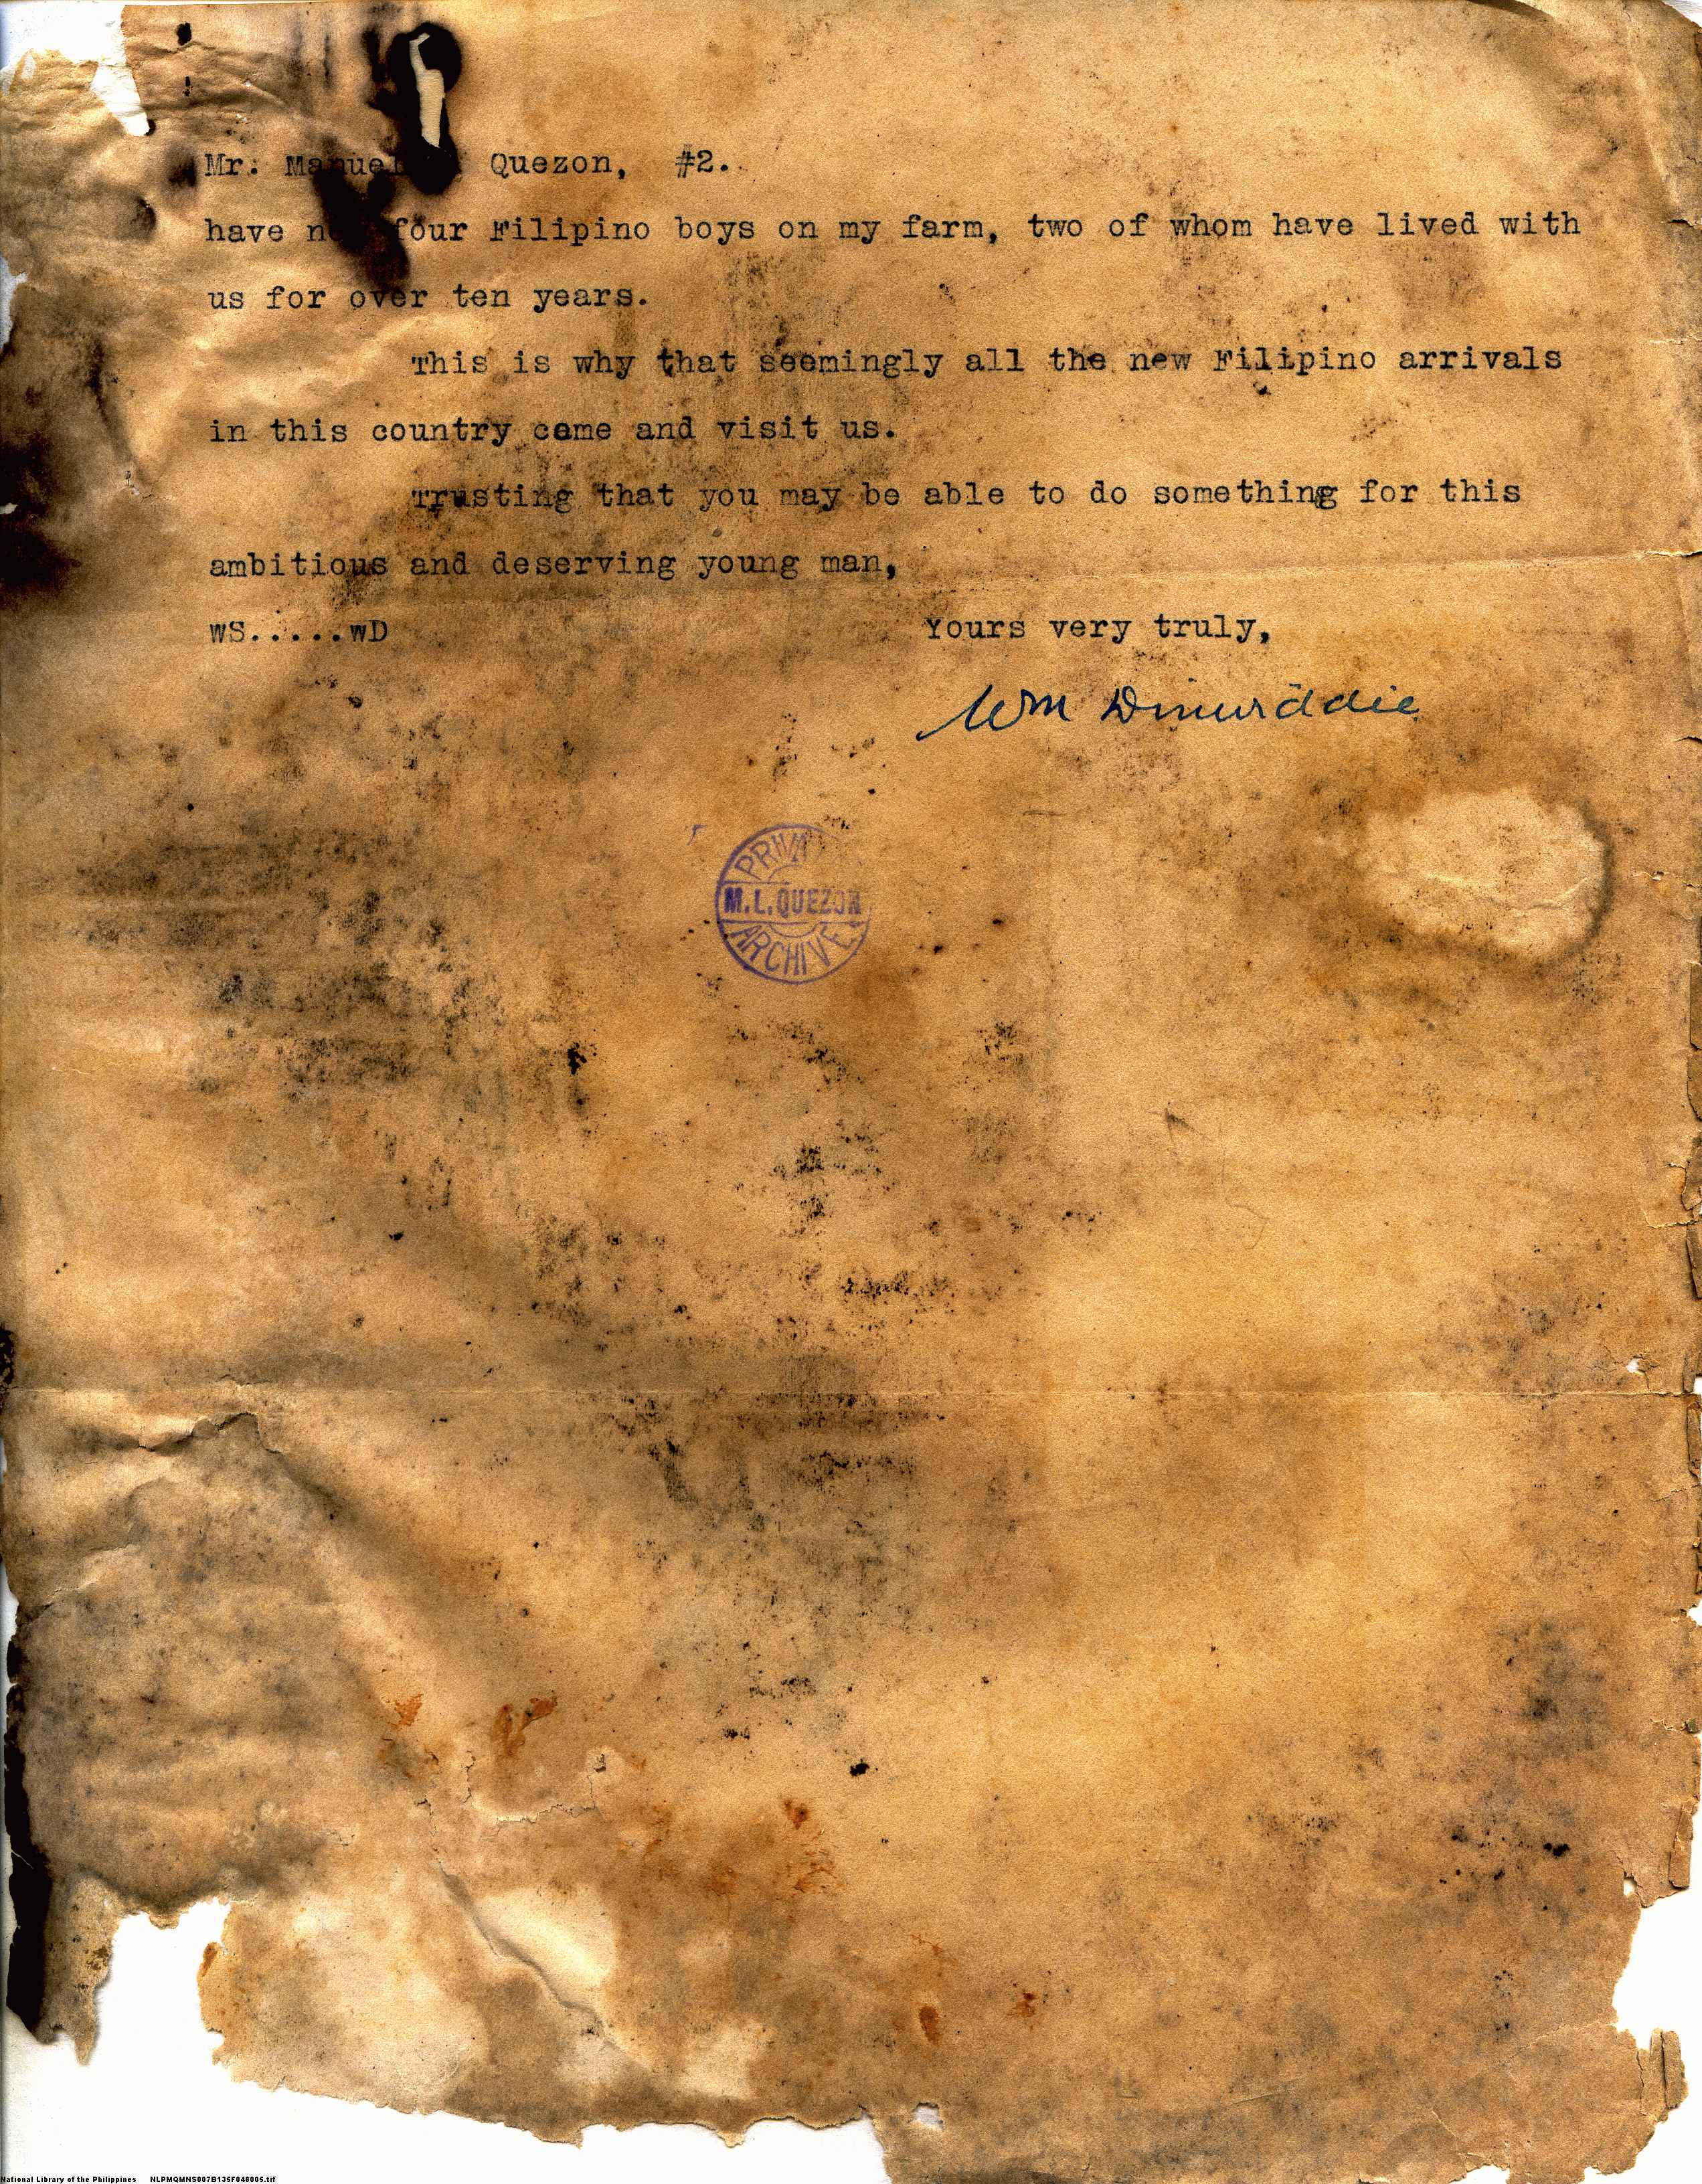 Mr. Manuel Quezon, #2.
have four Filipino boys on my farm, two of whom have lived with
us for over ten years.
This is why that seemingly all the new Filipino arrivals
in this country came and visit us.
Trusting that you may be able to do something for this
ambitious and deserving young man,
WS.....WD Yours very truly,
Wm
M.L.QUEZON
ARCHIVE
National Library of the Philippines NLPMQMNS007B135F048006.tif